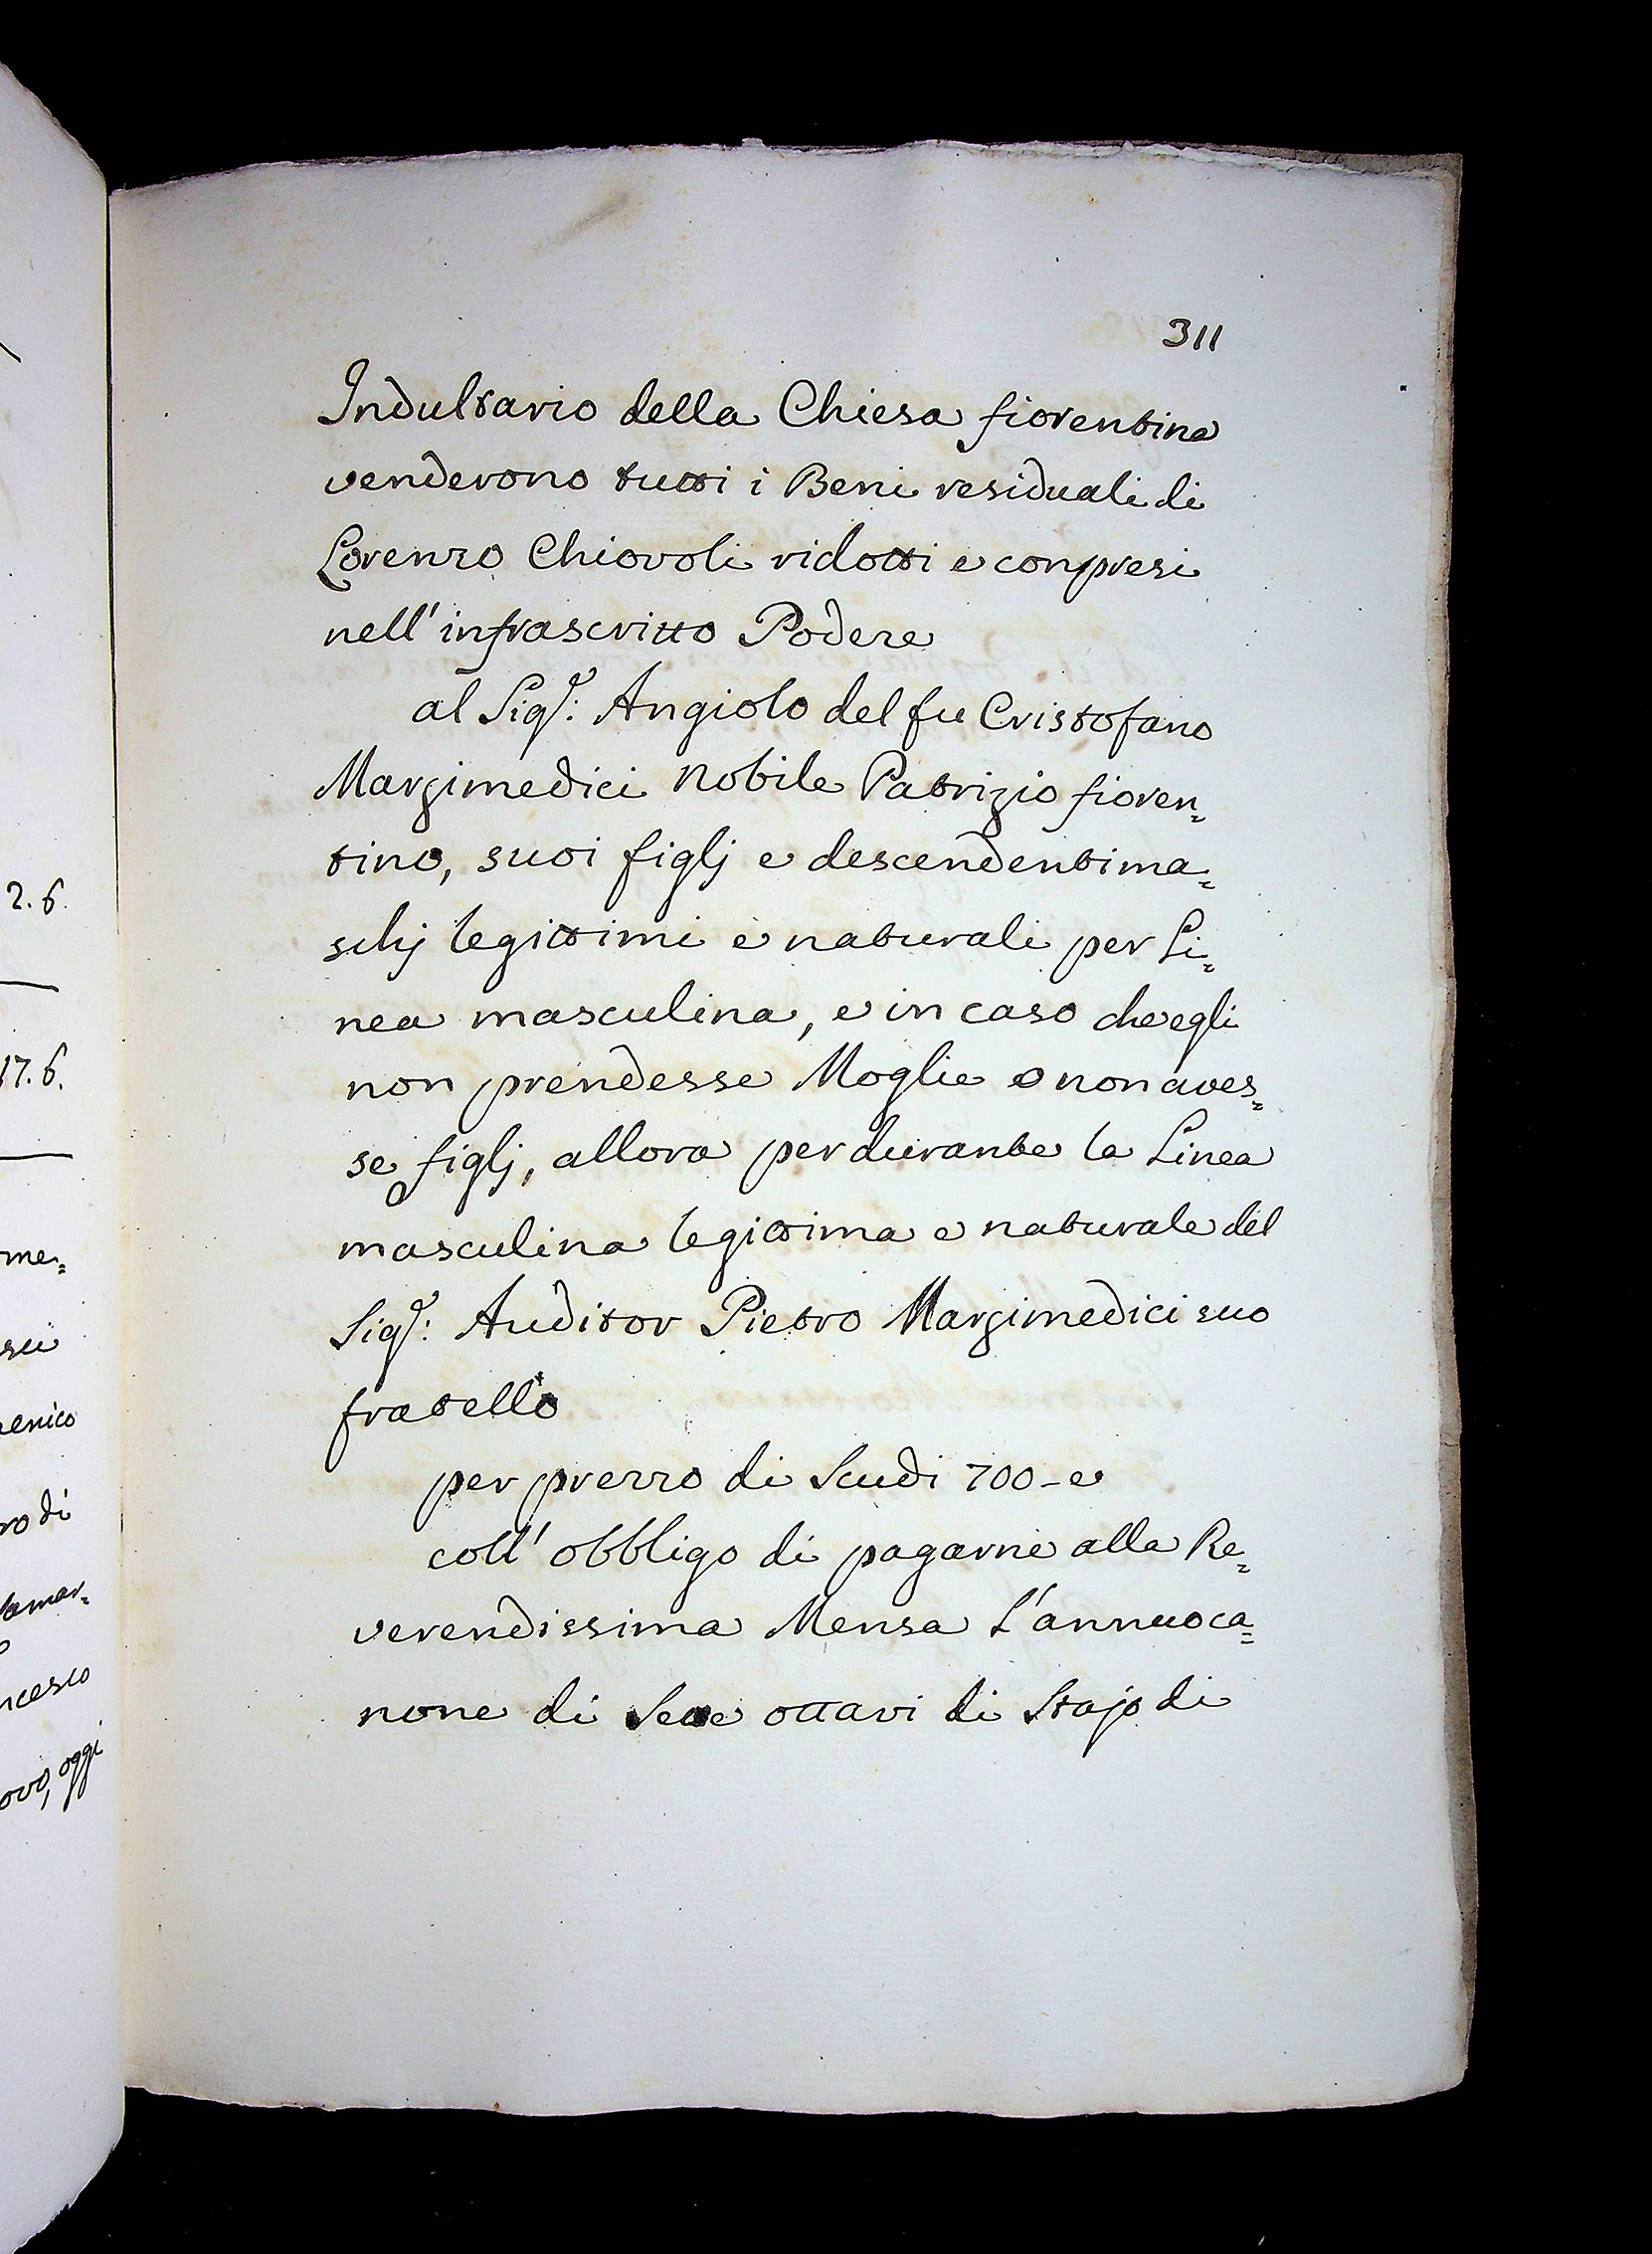 2.6.
17.6.
me=
sii
enico
ro di
amar=
o
ncesco
ovo, oggi
311
Indultario della Chiesa fiorentina
venderono tutti i Beni residuali di
Lorenzo Chiovoli ridotti e compresi
nell'infrascritto Podere
al Sigr: Angiolo del fu Cristofano
Marzimedici Nobile Patrizio fioren=
tino, suoi figlj e descendenti ma=
schj legittimi e naturali per Li=
nea masculina, e in caso che egli
non prendesse Moglie o non aves=
se figlj, allora perdurante la Linea
masculina legittima e naturale del
Sigr: Auditor Pietro Marzimedici suo
fratello
per prezzo di Scudi 700 - e
coll'obbligo di pagarne alla Re=
verendissima Mensa l'annuo ca=
none di Sette ottavi di Stajo di